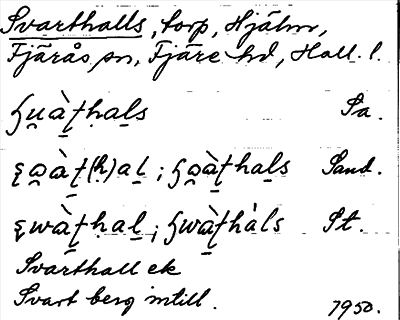 Svarthalls, torp, Hjälm,
Fjärås sn, Fjäre hd, Hall. l.
ɕu̯àt̠hal̠s Sa.
ʂo̯àt̠(h)al̠ ; ɕo̯àt̠hal̠s Sand.
ʂwàt̠hal̠ ; ɕwàt̠hàls St.
Svarthall ek
Svart berg intill.
1950.